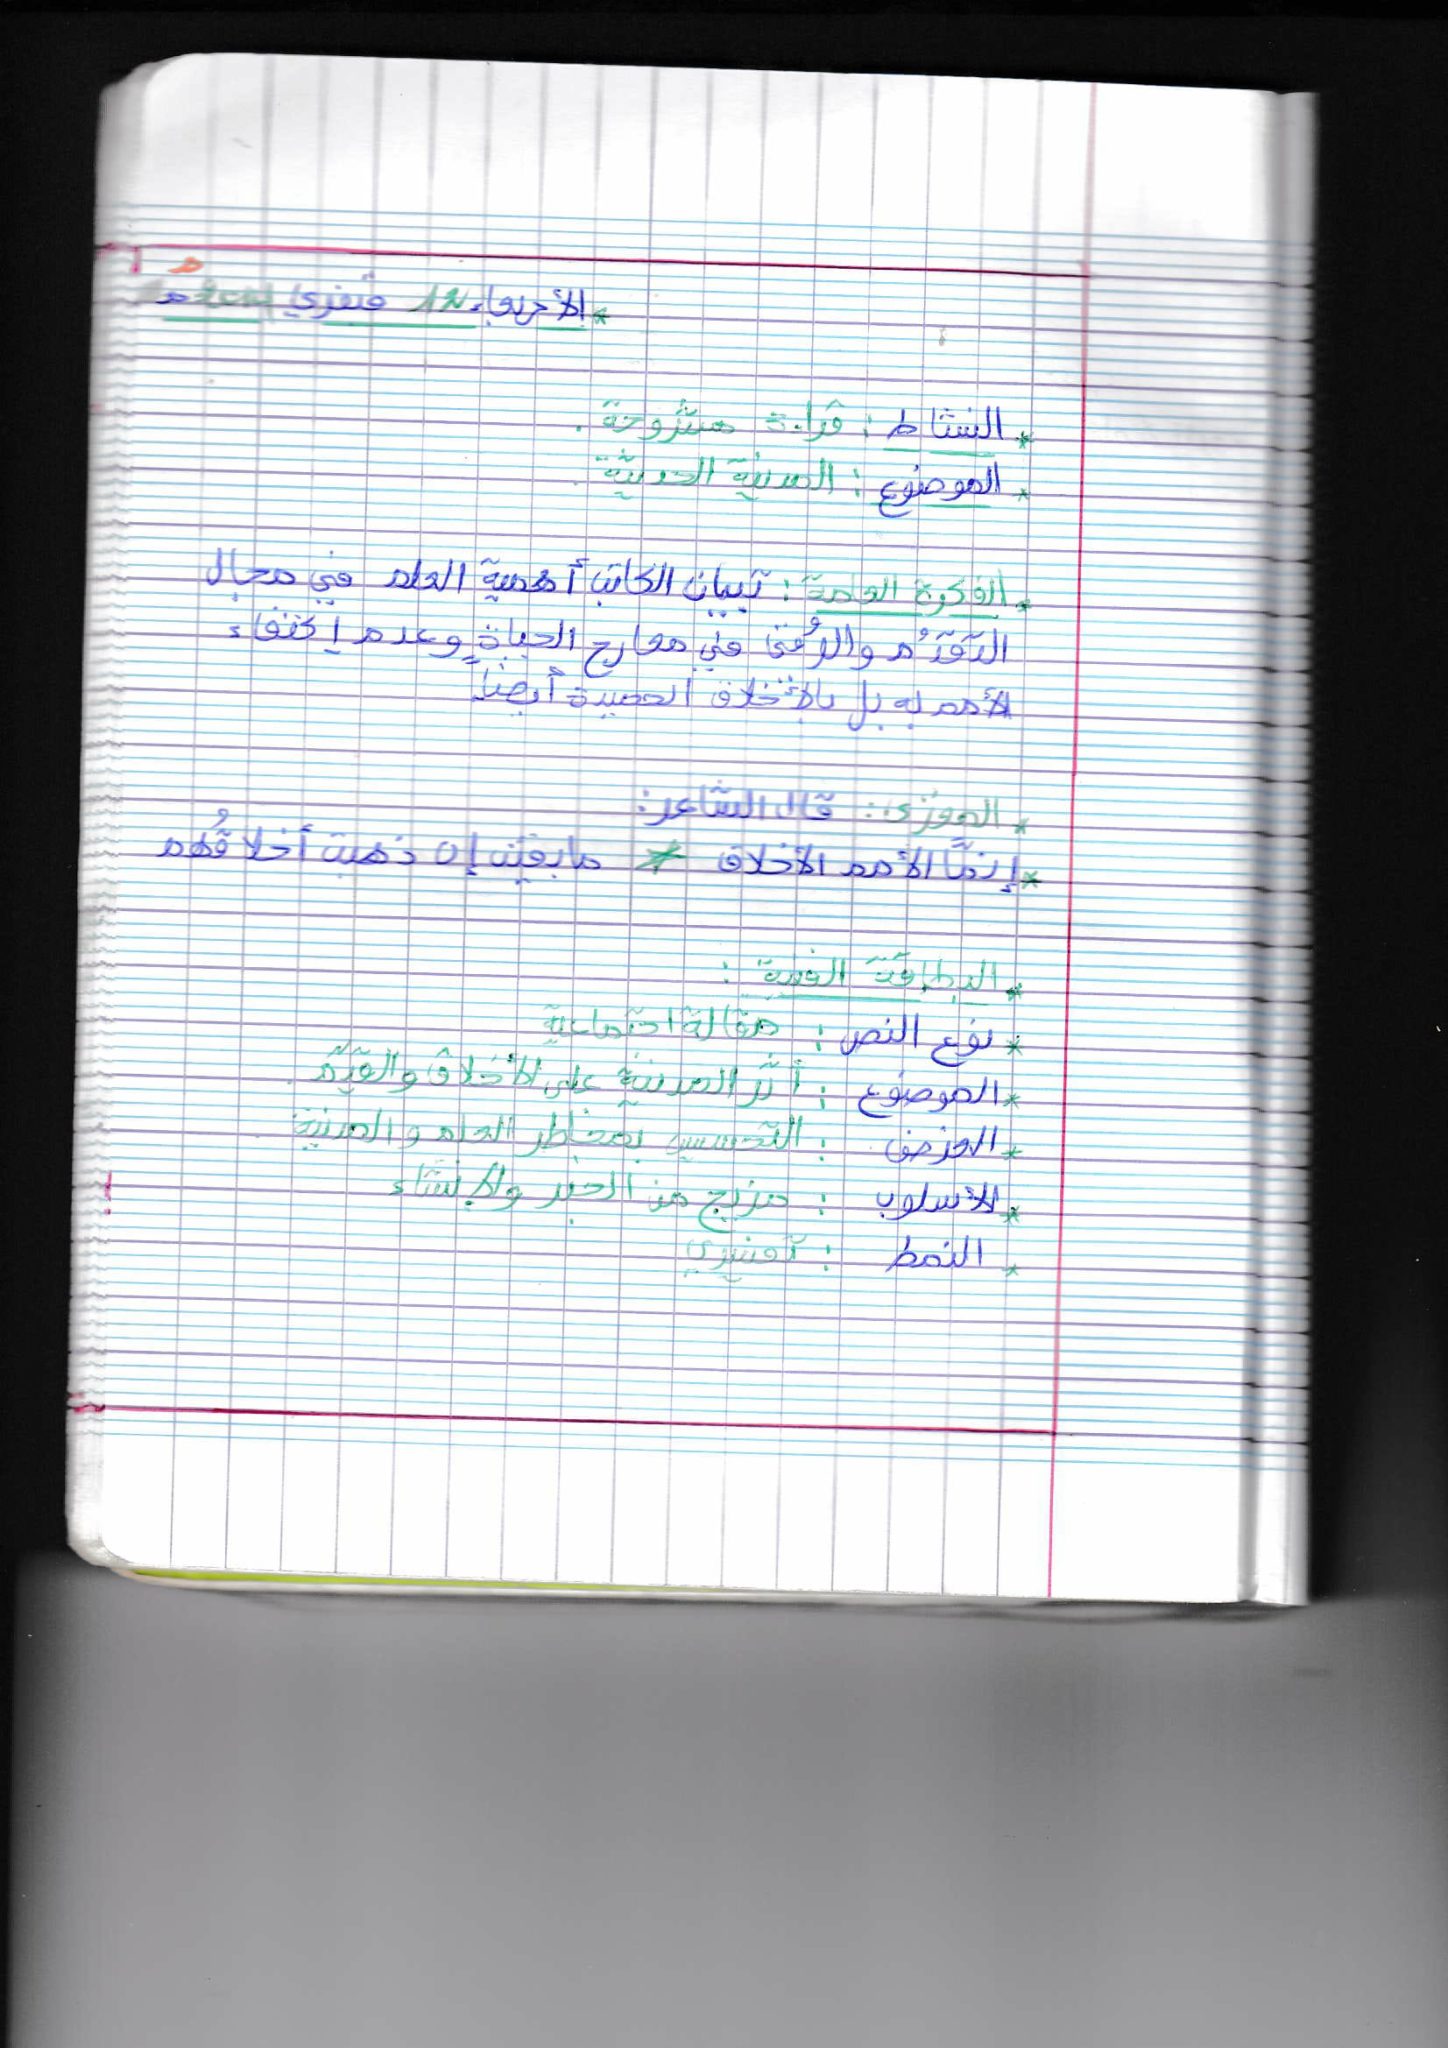 * الأربعاء 12 فيفري
* النشاط : قراءة مشروحة .
* الموضوع : المدنية الحديثة .
* الفكرة العامة : تبيان الكاتب أهمية العلم في مجال
التقدّم والرُقي في معارج الحياة وعدم إكتفاء
الأمم به بل بالأخلاق الحميدة أيضاً
* المغزى : قال الشاعر :
* إنمَّا الأمم الأخلاق * ما بقيت إن ذهبت أخلاقُهُم
* البطاقة الفنية :
* نوع النص : مقالة اجتماعية
* الموضوع : أثر المدنية على الأخلاق والقيم .
* الغرض : التحسيس بمخاطر العلم و المدنية
* الأسلوب : مزيج من الخبر والإنشاء
* النمط : تفسيري